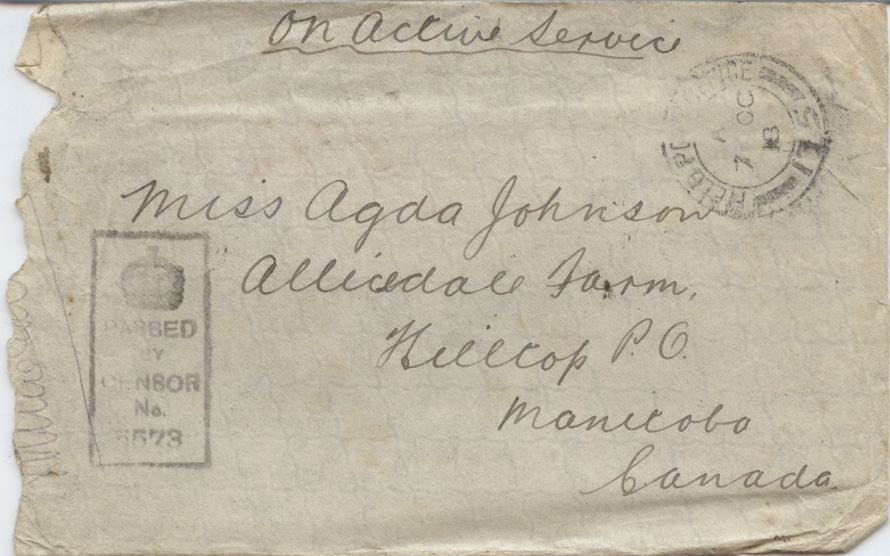 On Active Service
FIELD POST OFFICE
A
7 OC
18
Miss Agda Johnson
Allicedale Farm,
Hilltop P.O.
Manitoba
Canada
PASSED
BY
CENSOR
No.
5573